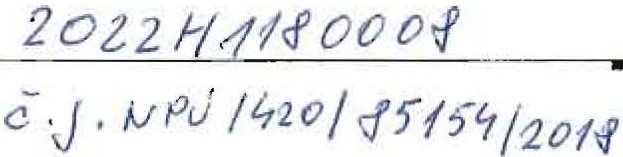 2022H1180008
č.j. NPÚ/420/85154/2018